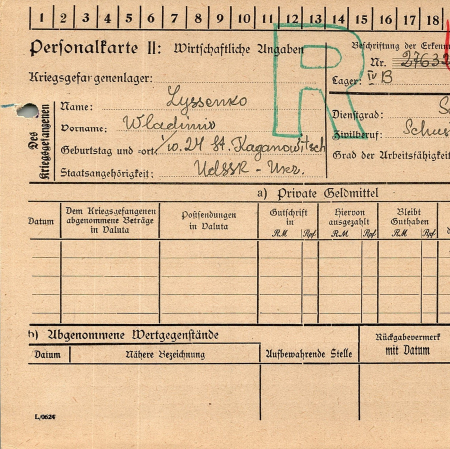 1 2 3 4 5 6 7 8 9 10 11 12 13 14 15 16 17 18
Personalkarte II: Wirtschaftliche Angaben
R
Beschriftung der Erkenn
Nr. 2763
Kriegsgefangenenlager:
Lager: IV B
Des Kriegsgefangenen
Name: Lyssenko
Vorname: Wladimir
Dienstgrad: S
Zivilberuf: Schus
Geburtstag und -ort: 1/10.24 St. Kaganowitsch
Grad der Arbeitsfähigkeit
Staatsangehörigkeit: UdSSR - Ukr.
a) Private Geldmittel
Datum
Dem Kriegsgefangenen abgenommene Beträge in Valuta
Postsendungen in Valuta
Gutschrift in
RM Rpf.
Hiervon ausgezahlt
RM Rpf.
Bleibt Guthaben
RM Rpf.
b) Abgenommene Wertgegenstände
Datum
Nähere Bezeichnung
Aufbewahrende Stelle
Rückgabevermerk mit Datum
L/0624